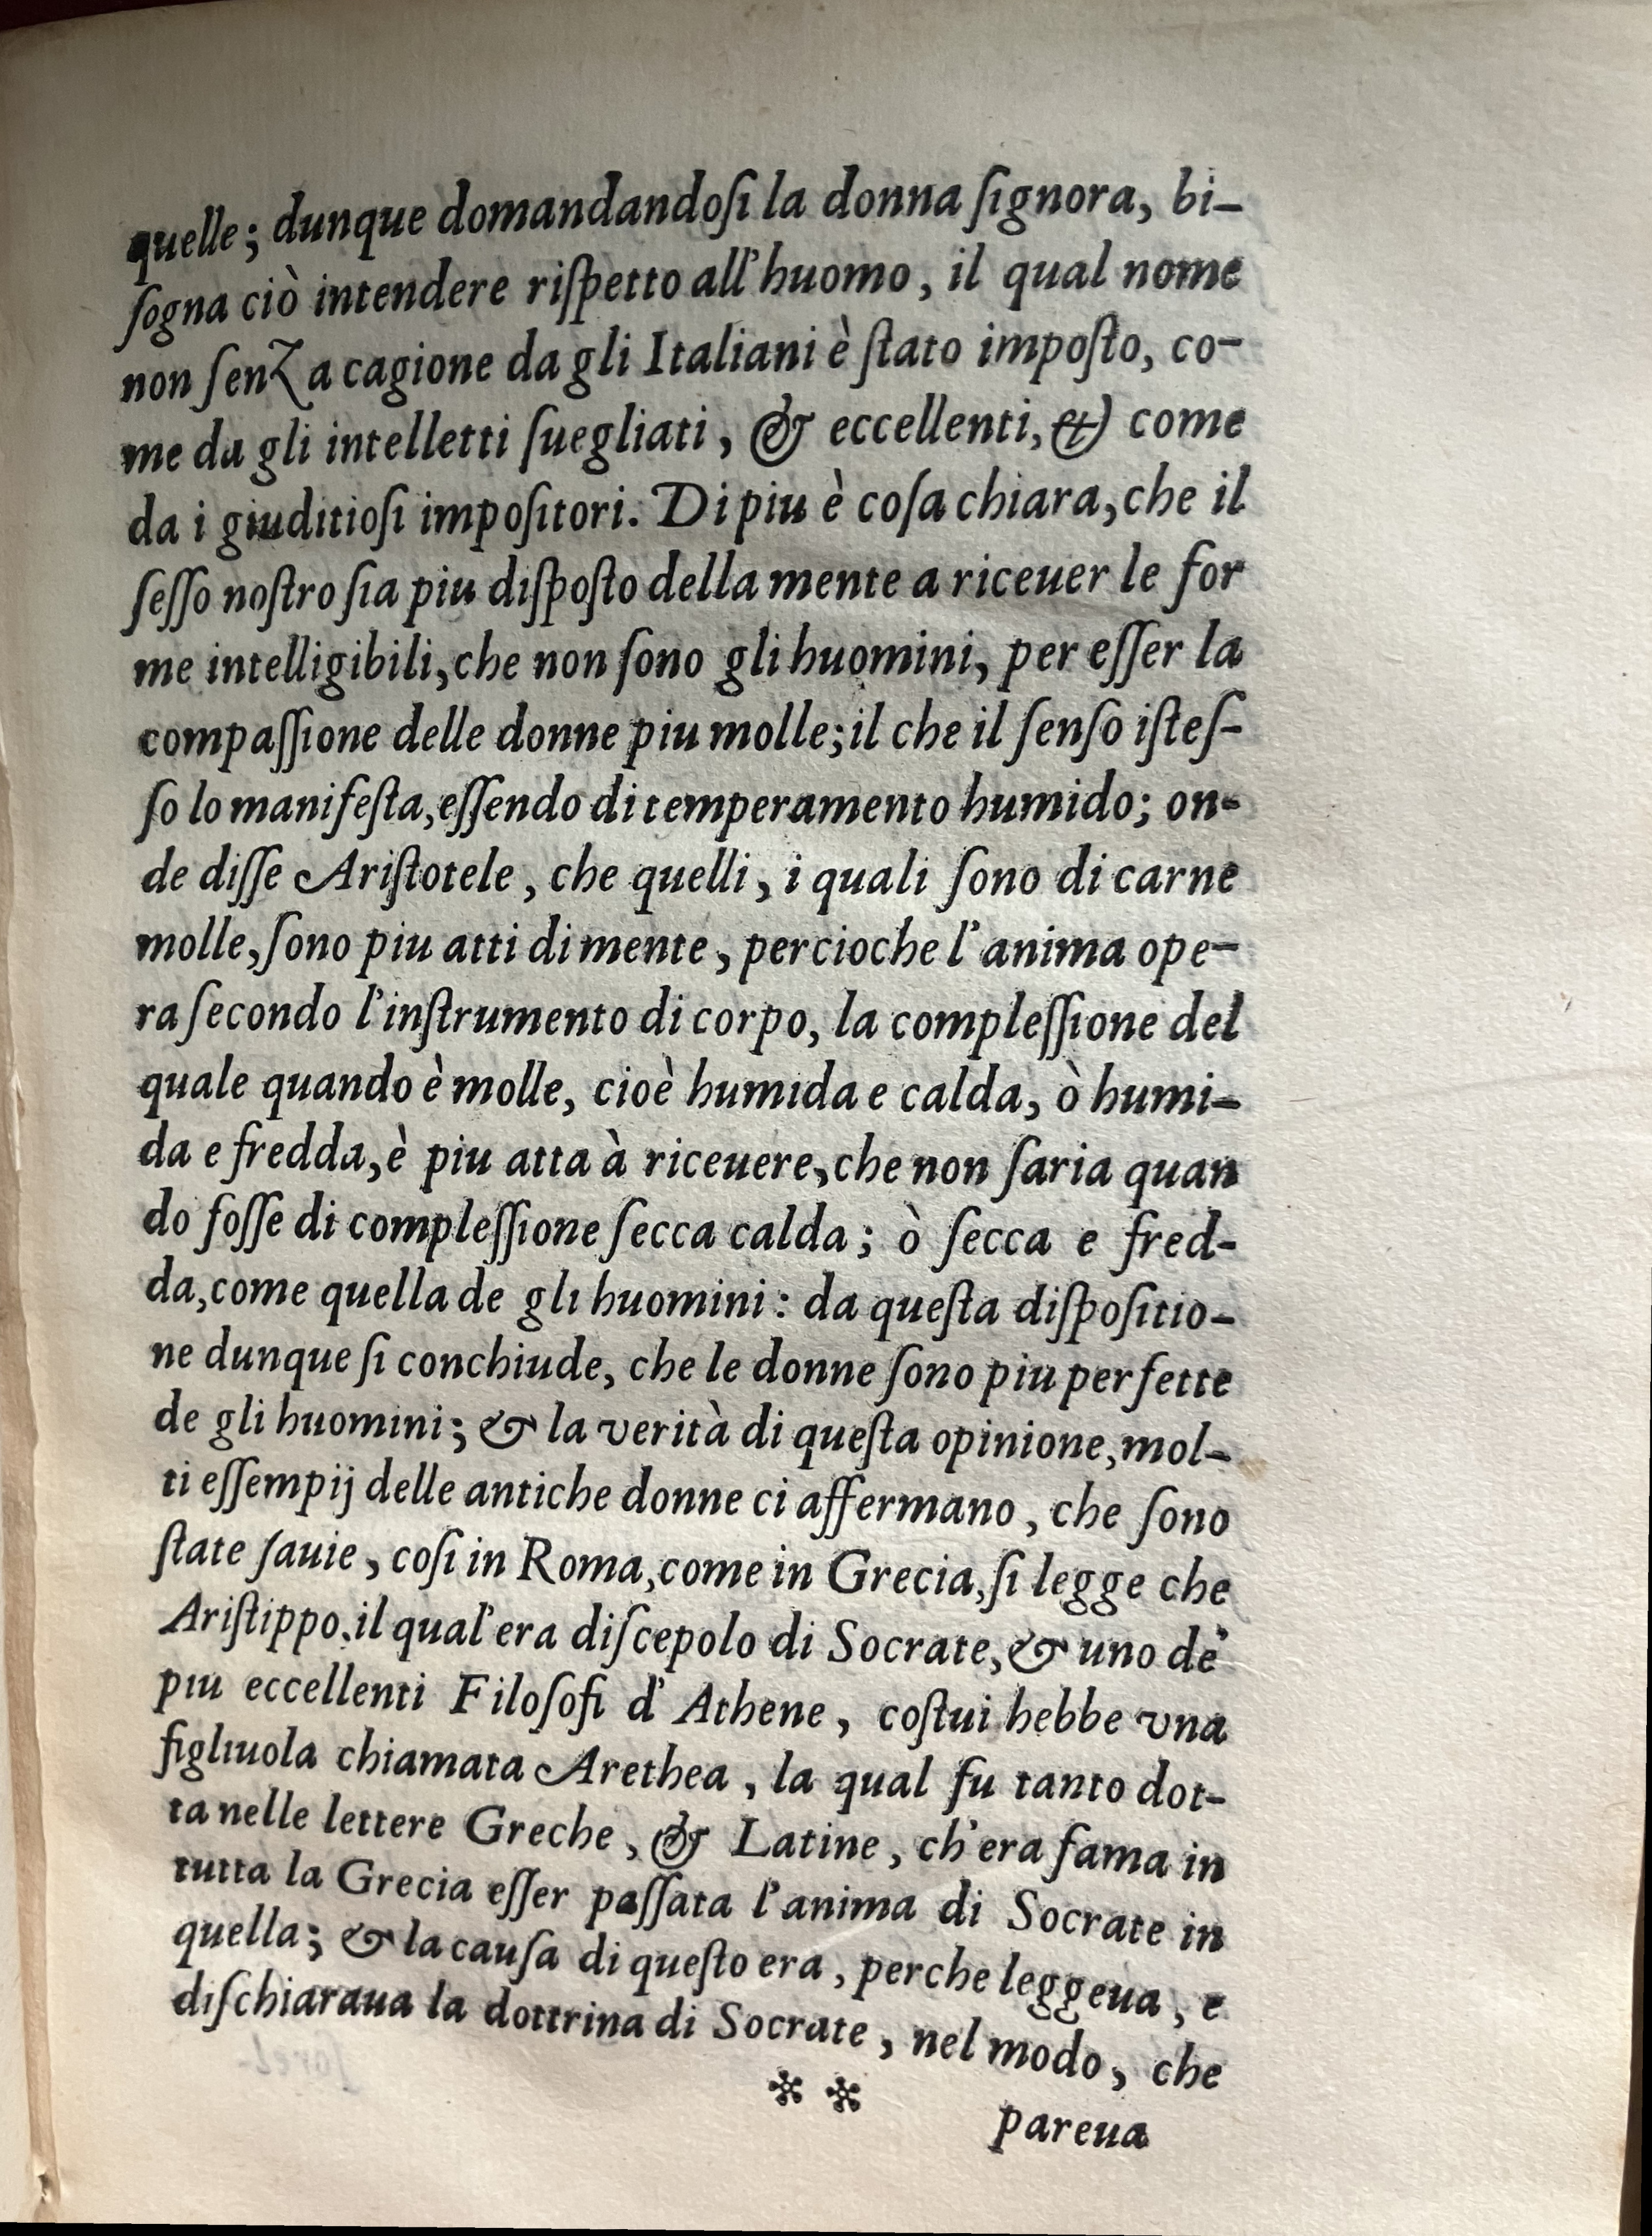 quelle; dunque domandandoſi la donna ſignora, bi-
ſogna ciò intendere riſpetto all'huomo, il qual nome
non ſenza cagione da gli Italiani è ſtato impoſto, co-
me da gli intelletti ſuegliati, & eccellenti, & come
da i giuditioſi impoſitori. Di piu è coſa chiara, che il
ſeſſo noſtro ſia piu diſpoſto della mente a riceuer le for
me intelligibili, che non ſono gli huomini, per eſſer la
compaſſione delle donne piu molle; il che il ſenſo iſteſ-
ſo lo manifeſta, eſſendo di temperamento humido; on-
de diſſe Ariſtotele, che quelli, i quali ſono di carne
molle, ſono piu atti di mente, percioche l'anima ope-
ra ſecondo l'inſtrumento di corpo, la compleſſione del
quale quando è molle, cioè humida e calda, ò humi-
da e fredda, è piu atta à riceuere, che non ſaria quan
do foſſe di compleſſione ſecca calda; ò ſecca e fred-
da, come quella de gli huomini: da queſta diſpoſitio-
ne dunque ſi conchiude, che le donne ſono piu perfette
de gli huomini; & la verità di queſta opinione, mol-
ti eſſempij delle antiche donne ci affermano, che ſono
ſtate ſauie, coſi in Roma, come in Grecia, ſi legge che
Ariſtippo, il qual'era diſcepolo di Socrate, & uno de'
piu eccellenti Filoſofi d'Athene, coſtui hebbe vna
figliuola chiamata Arethea, la qual fu tanto dot-
ta nelle lettere Greche, & Latine, ch'era fama in
tutta la Grecia eſſer paſſata l'anima di Socrate in
quella; & la cauſa di queſto era, perche leggeua, e
diſchiaraua la dottrina di Socrate, nel modo, che
** pareua